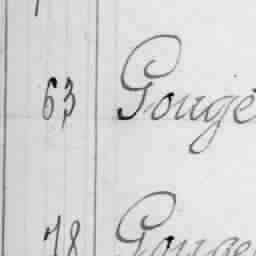 63 Gouge
78 Gouge